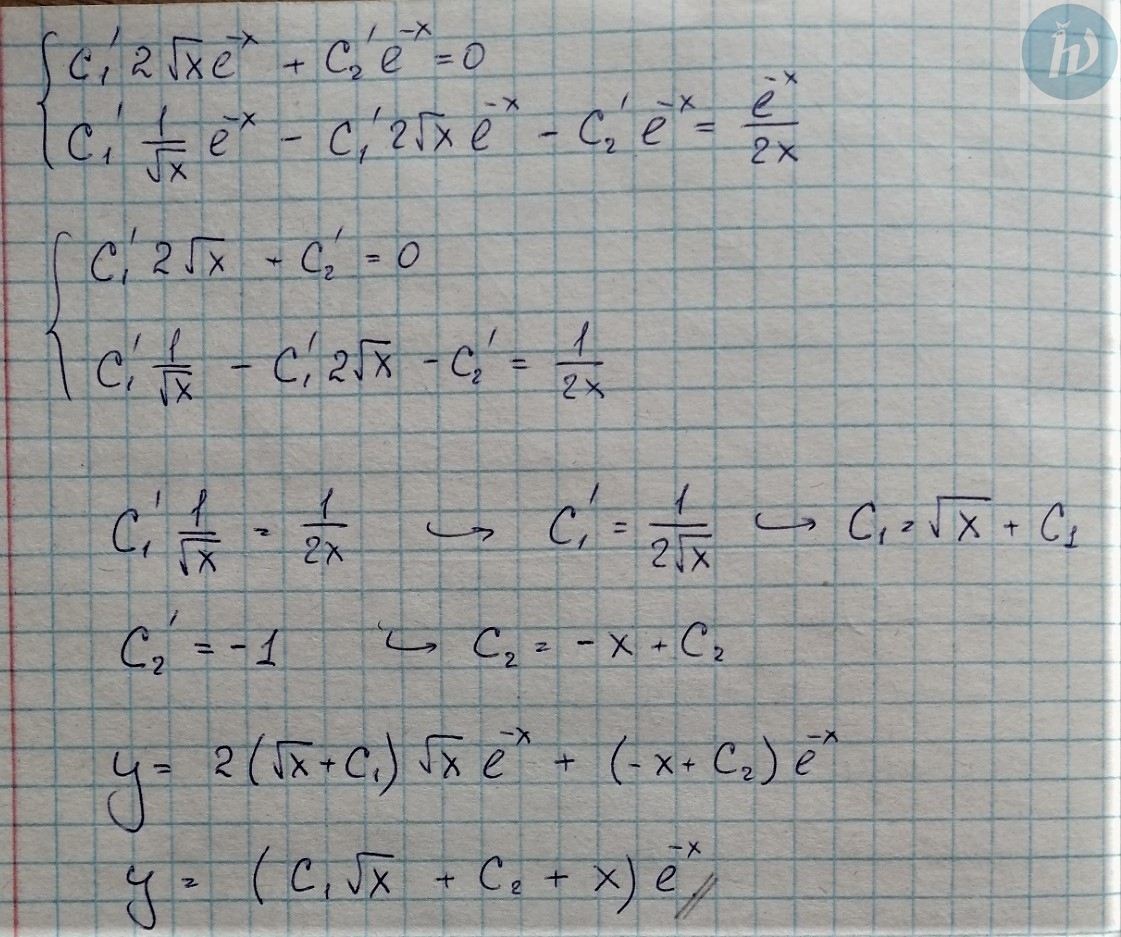 C₁′ 2√x e^{-x} + C₂′ e^{-x} = 0
C₁′ 1/√x e^{-x} - C₁′ 2√x e^{-x} - C₂′ e^{-x} = e^{-x}/2x
C₁′ 2√x + C₂′ = 0
C₁′ 1/√x - C₁′ 2√x - C₂′ = 1/2x
C₁′ 1/√x = 1/2x ↪ C₁′ = 1/2√x ↪ C₁ = √x + C₁
C₂′ = -1 ↪ C₂ = -x + C₂
y = 2(√x + C₁) √x e^{-x} + (-x + C₂) e^{-x}
y = (C₁√x + C₂ + x) e^{-x} //